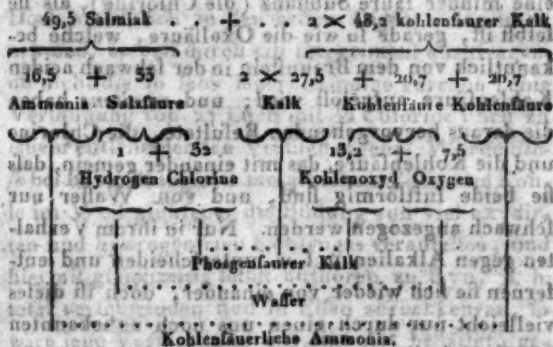 49,5 Salmiak . . + . . 2 × 48,2 kohlenſaurer Kalk
16,5 + 33 2 × 27,5 + 20,7 + 20,7
Ammonia Salzſäure Kalk Kohlenſäure Kohlenſäure
1 + 32 13,2 + 7,5
Hydrogen Chlorine Kohlenoxyd Oxygen
Phosgenſaurer Kalk
Waſſer
Kohlenſäuerliche Ammonia.